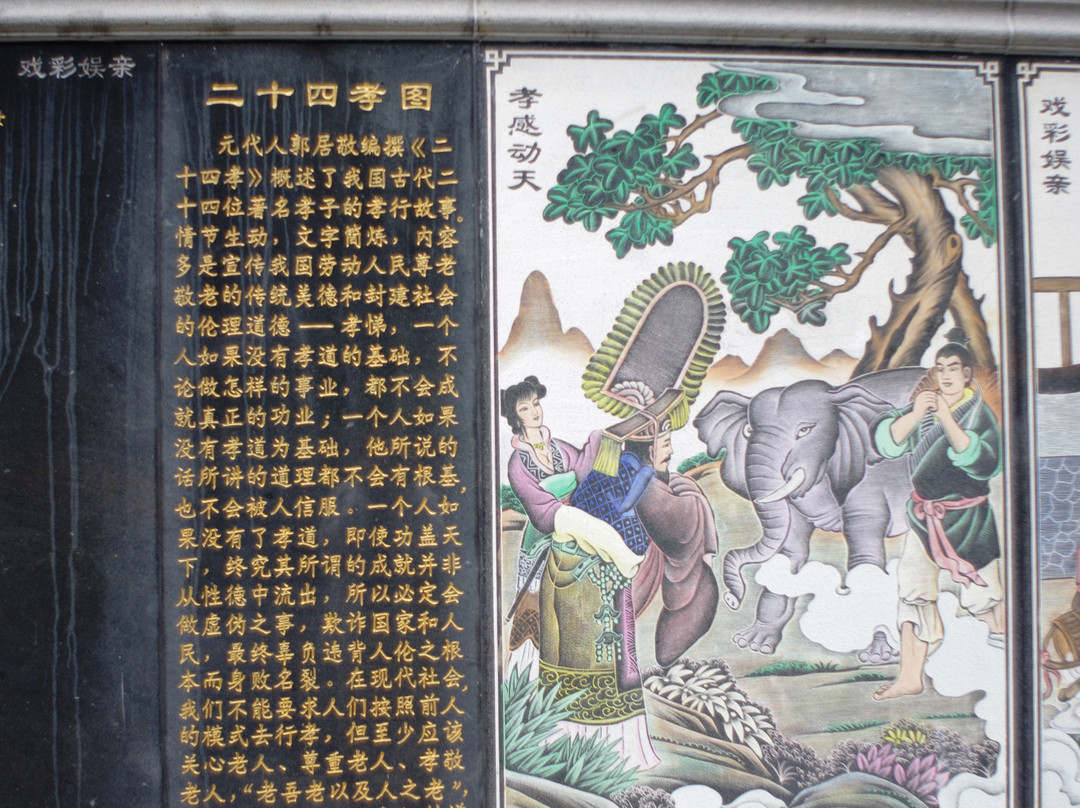 戏彩娱亲
二十四孝图
元代人郭居敬编撰《二
十四孝》概述了我国古代二
十四位著名孝子的孝行故事。
情节生动，文字简炼，内容
多是宣传我国劳动人民尊老
敬老的传统美德和封建社会
的伦理道德——孝悌，一个
人如果没有孝道的基础，不
论做怎样的事业，都不会成
就真正的功业；一个人如果
没有孝道为基础，他所说的
话所讲的道理都不会有根基，
也不会被人信服。一个人如
果没有了孝道，即使功盖天
下，终究其所谓的成就并非
从性德中流出，所以必定会
做虚伪之事，欺诈国家和人
民，最终辜负违背人伦之根
本而身败名裂。在现代社会，
我们不能要求人们按照前人
的模式去行孝，但至少应该
关心老人、尊重老人、孝敬
老人，“老吾老以及人之老”，
孝感动天
戏彩娱亲